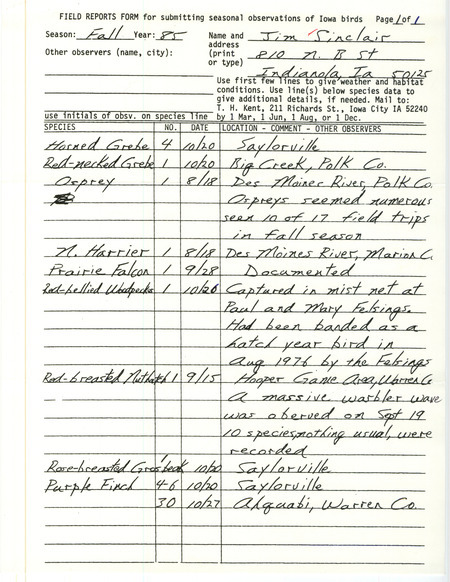 FIELD REPORTS FORM for submitting seasonal observations of Iowa birds Page 1 of 1
Season: Fall Year: 85 Name and address (print or type) Jim Sinclair
Other observers (name, city): 810 N. B St
Indianola, Ia 50125
Use first few lines to give weather and habitat
conditions. Use line(s) below species data to
give additional details, if needed. Mail to:
T. H. Kent, 211 Richards St., Iowa City IA 52240
use initials of obsv. on species line by 1 Mar, 1 Jun, 1 Aug, or 1 Dec.
SPECIES NO. DATE LOCATION - COMMENT - OTHER OBSERVERS
Horned Grebe 4 10/20 Saylorville
Red-necked Grebe 1 10/20 Big Creek, Polk Co.
Osprey 1 8/18 Des Moines River, Polk Co.
Ospreys seemed numerous
seen 10 of 17 field trips
in fall season
N. Harrier 1 8/18 Des Moines River, Marion C.
Prairie Falcon 1 9/28 Documented
Red-bellied Woodpecker 1 10/26 Captured in mist net at
Paul and Mary Felsings.
Had been banded as a
hatch year bird in
Aug 1976 by the Felsings
Red-breasted Nuthatch 1 9/15 Hooper Game Area, Warren Co
A massive warbler wave
was oberved on Sept 19
10 species, nothing usual, were
recorded
Rose-breasted Grosbeak 10/20 Saylorville
Purple Finch 46 10/20 Saylorville
30 10/27 Ahquabi, Warren Co.